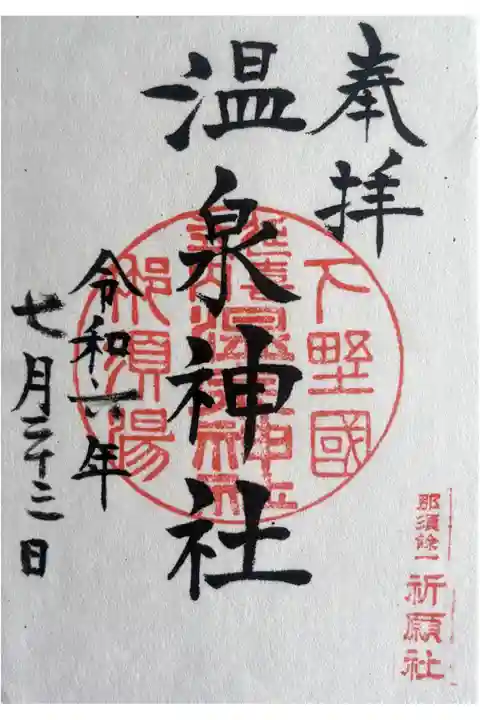 奉拝
下野國
延喜
式内
温泉神社
那須湯
温泉神社
令和六年
七月二十三日
那須餘一
祈願社